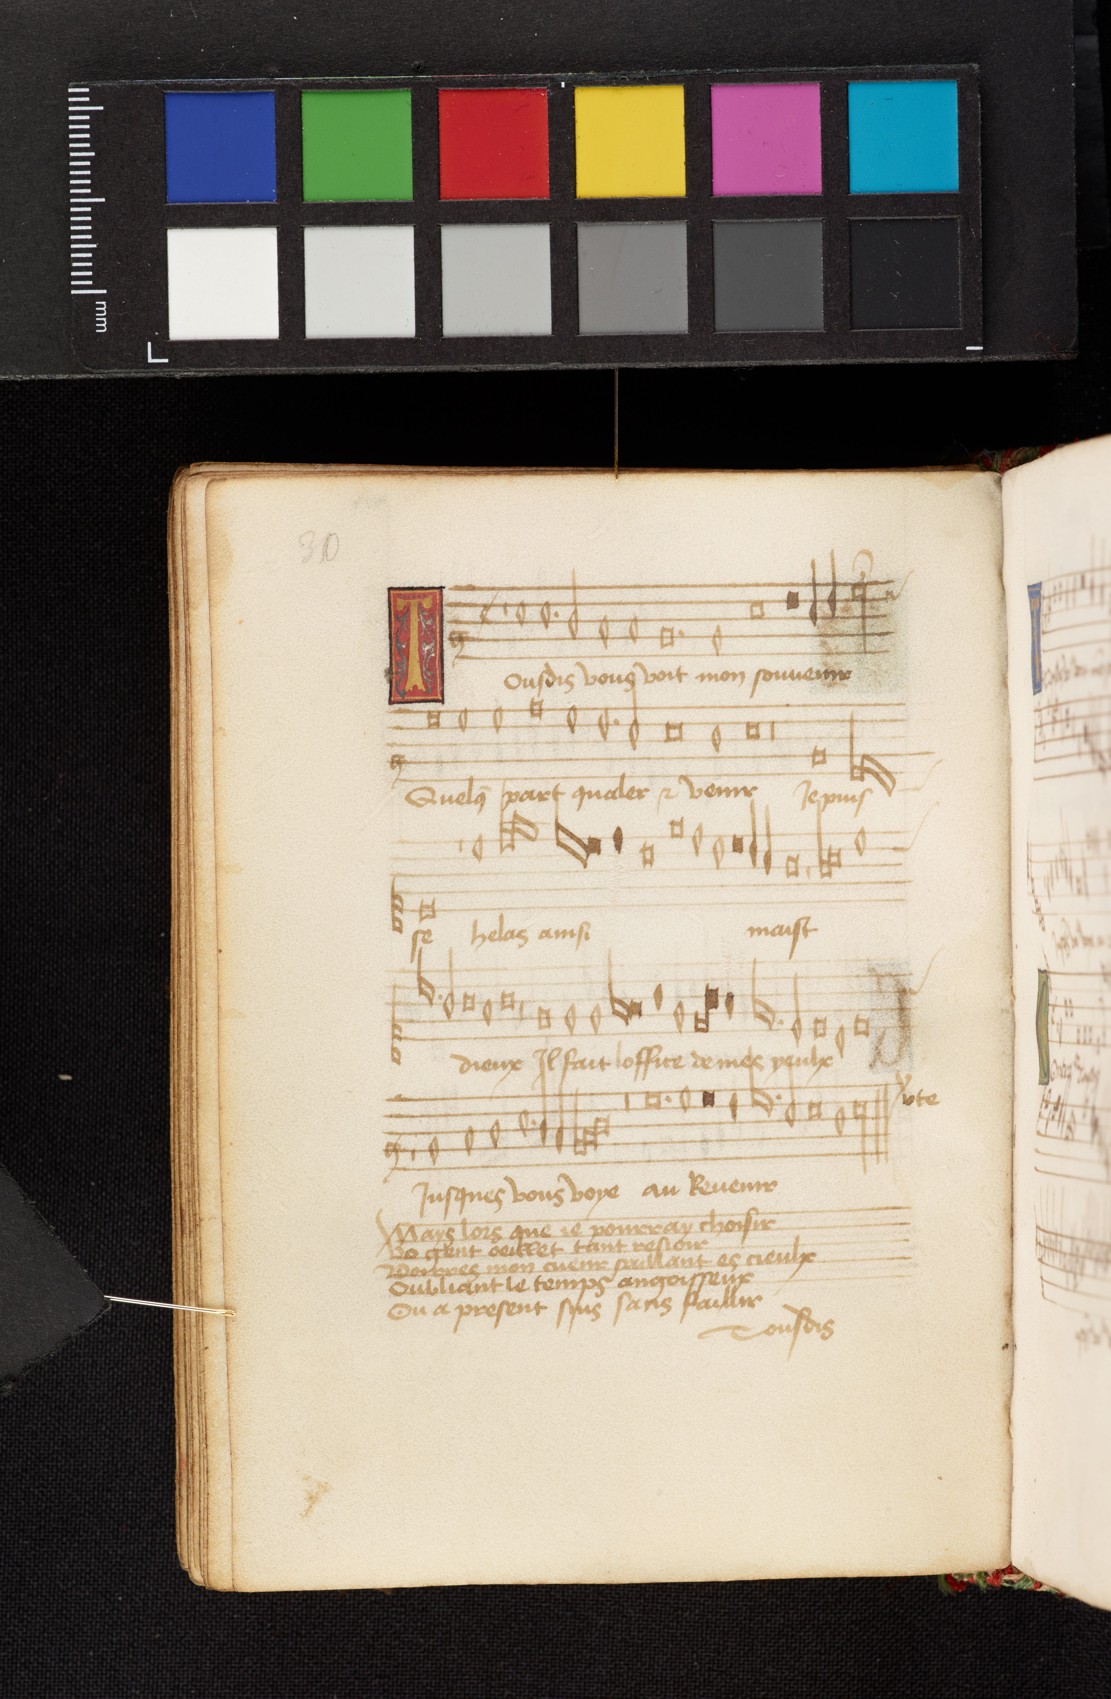 mm
30
Tousdis vous voit mon souvenir
Quelq̄ part qualer & venir Je puis
se helas ainsi maist
dieux Il fait loffice de mes yeulx
vte
Jusques vous voye au Revenir
Mays lors que ie pourray choisir
vo gent oeillet tant
mon cueur saillant es cieulx
Oubliant le temps angoisseux
Ou a present suis sans faillir
Tousdis